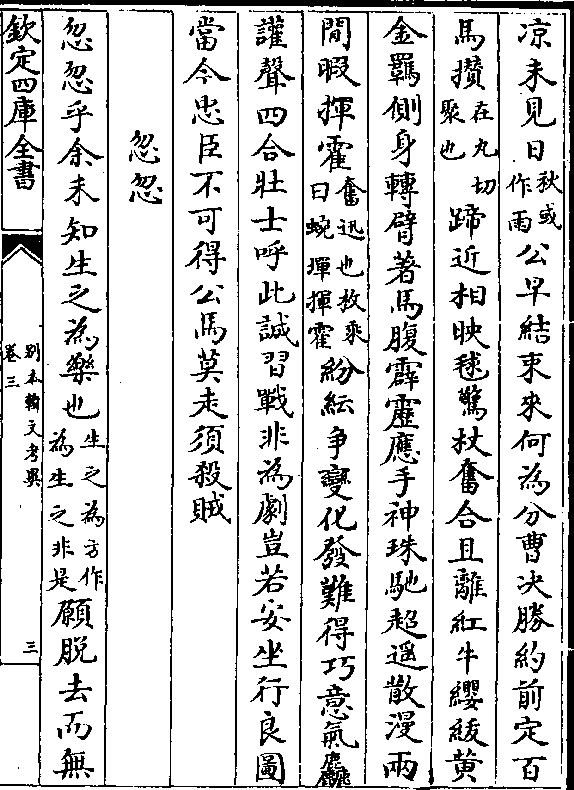 凉未見日秋或作雨公早結束來何為分曹决勝約前定百
馬攅在丸切聚也蹄近相映毬驚杖奮合且離紅牛纓紱黄
金羈側身轉臂著馬腹霹靂應手神珠馳超遥散漫兩
閒暇揮霍奮迅也枚乘曰蜿揮揮霍紛紜争變化發難得巧意氣麤
讙聲四合壯士呼此誠習戰非為劇豈若安坐行良圖
當今忠臣不可得公馬莫走須殺賊
忽忽
忽忽乎余未知生之為樂也生之為方作為生之非是願脱去而無
欽定四庫全書
别本韓文考異
卷三
三